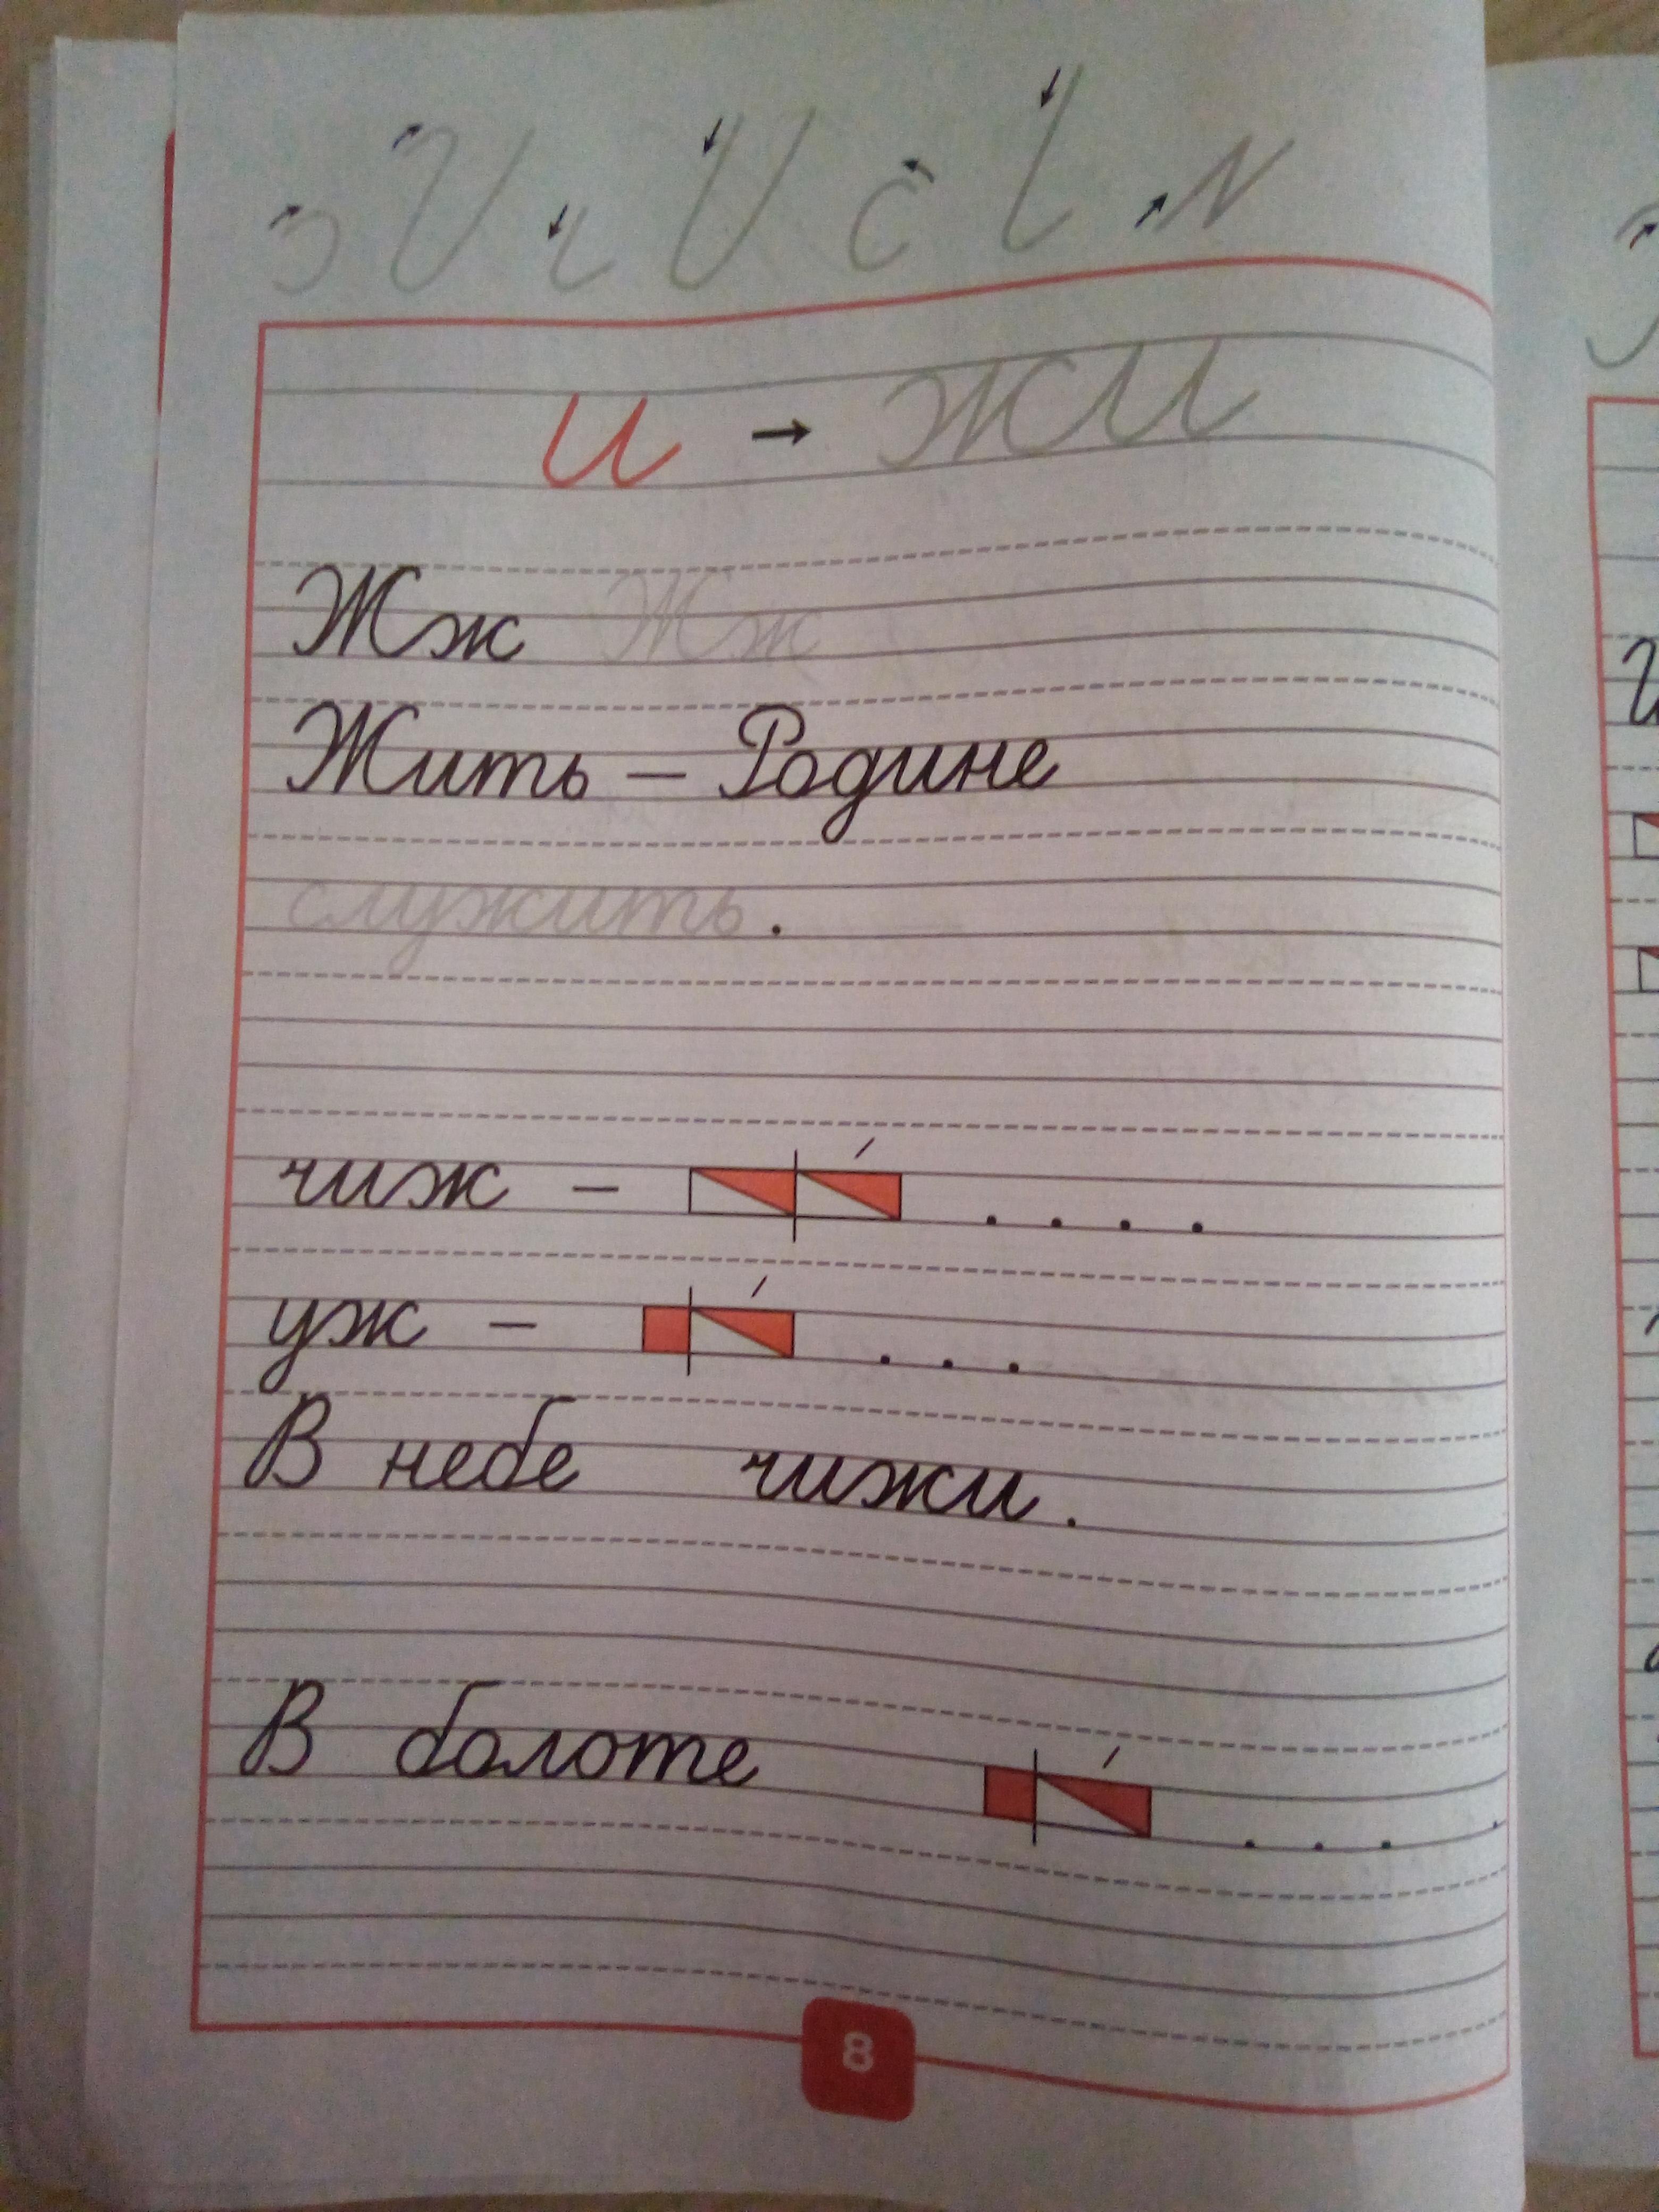 и → жи
Жж Жж
Жить – Родине
служить.
чиж – . . . .
уж – . . .
В небе чижи.
В болоте . . . .
8